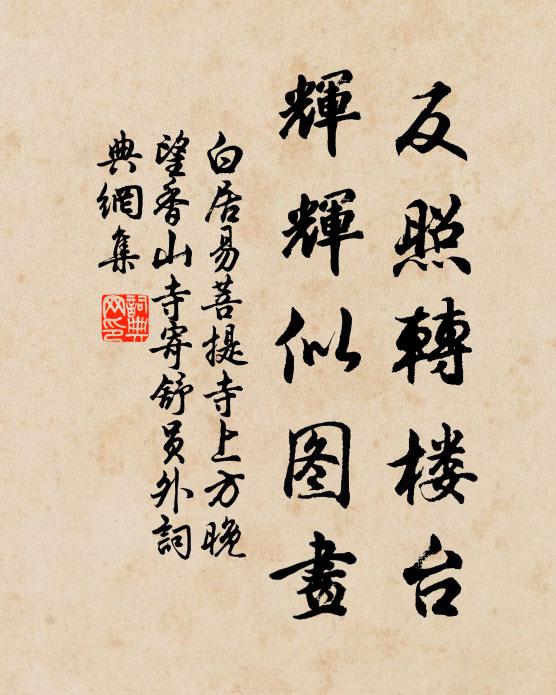 反照轉楼台
輝輝似图畫
白居易菩提寺上方晚
望香山寺寄舒员外詞
典網集
詞典网印